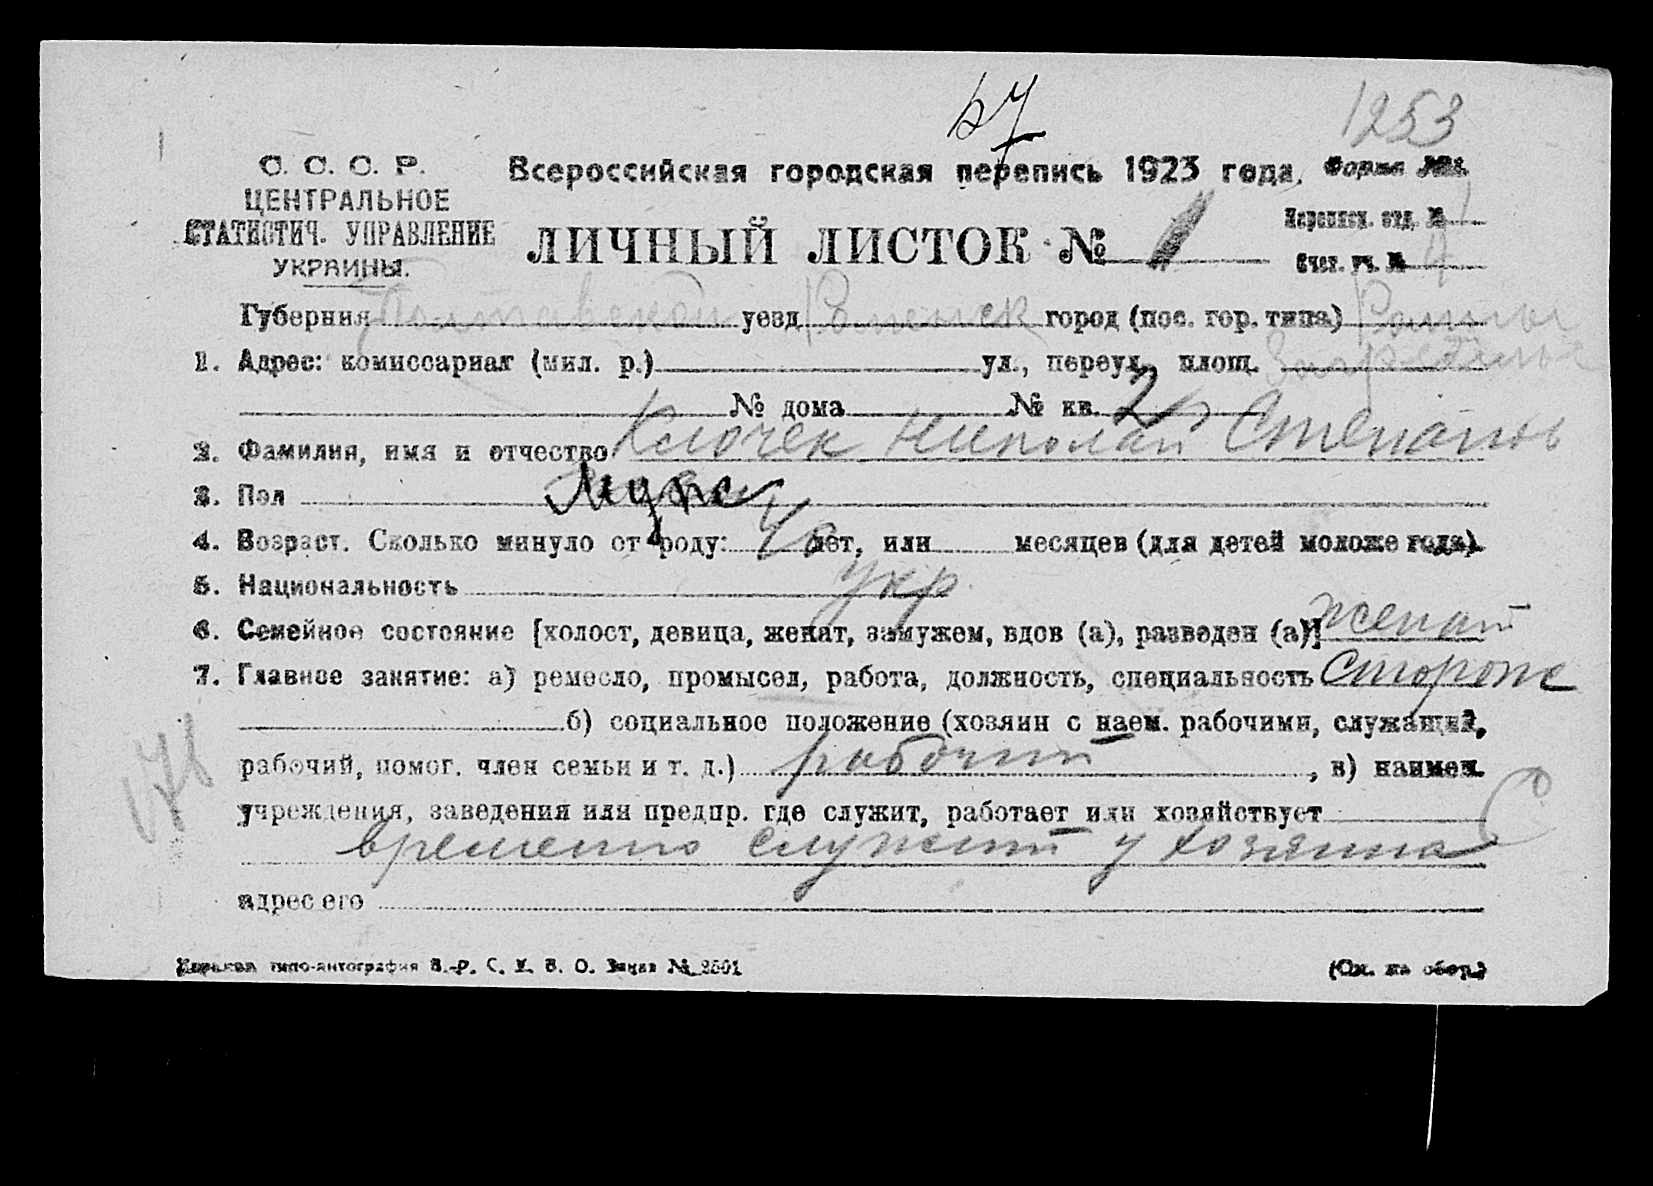 67
1253
С. С. С. Р.
ЦЕНТРАЛЬНОЕ
СТАТИСТИЧ. УПРАВЛЕНИЕ
УКРАИНЫ.
Всероссийская городская перепись 1923 года.
Форма №1.
ЛИЧНЫЙ ЛИСТОК № 1
Переписн. отд. № 1
Счет. уч. № 4
Губерния Полтавская уезд Роменск город (пос. гор. типа) Ромны
1. Адрес: комиссариат (мил. р.) ул., переул., площ.
№ дома № кв. 2
2. Фамилия, имя и отчество Клочек Николай Степанов
3. Пол Мужс
4. Возраст. Сколько минуло от роду: лет, или месяцев (для детей моложе года).
5. Национальность укр.
6. Семейное состояние [холост, девица, женат, замужем, вдов (а), разведен (а)] женат
7. Главное занятие: а) ремесло, промысел, работа, должность, специальность Сторож
б) социальное положение (хозяин с наем. рабочими, служащий,
рабочий, помог. член семьи и т. д.) рабочий, в) наимен.
учреждения, заведения или предпр. где служит, работает или хозяйствует
временно служит у хозяина
адрес его
типо-литография В.-Р. С. У. В. О. Заказ № 2501
(См. на обор.)